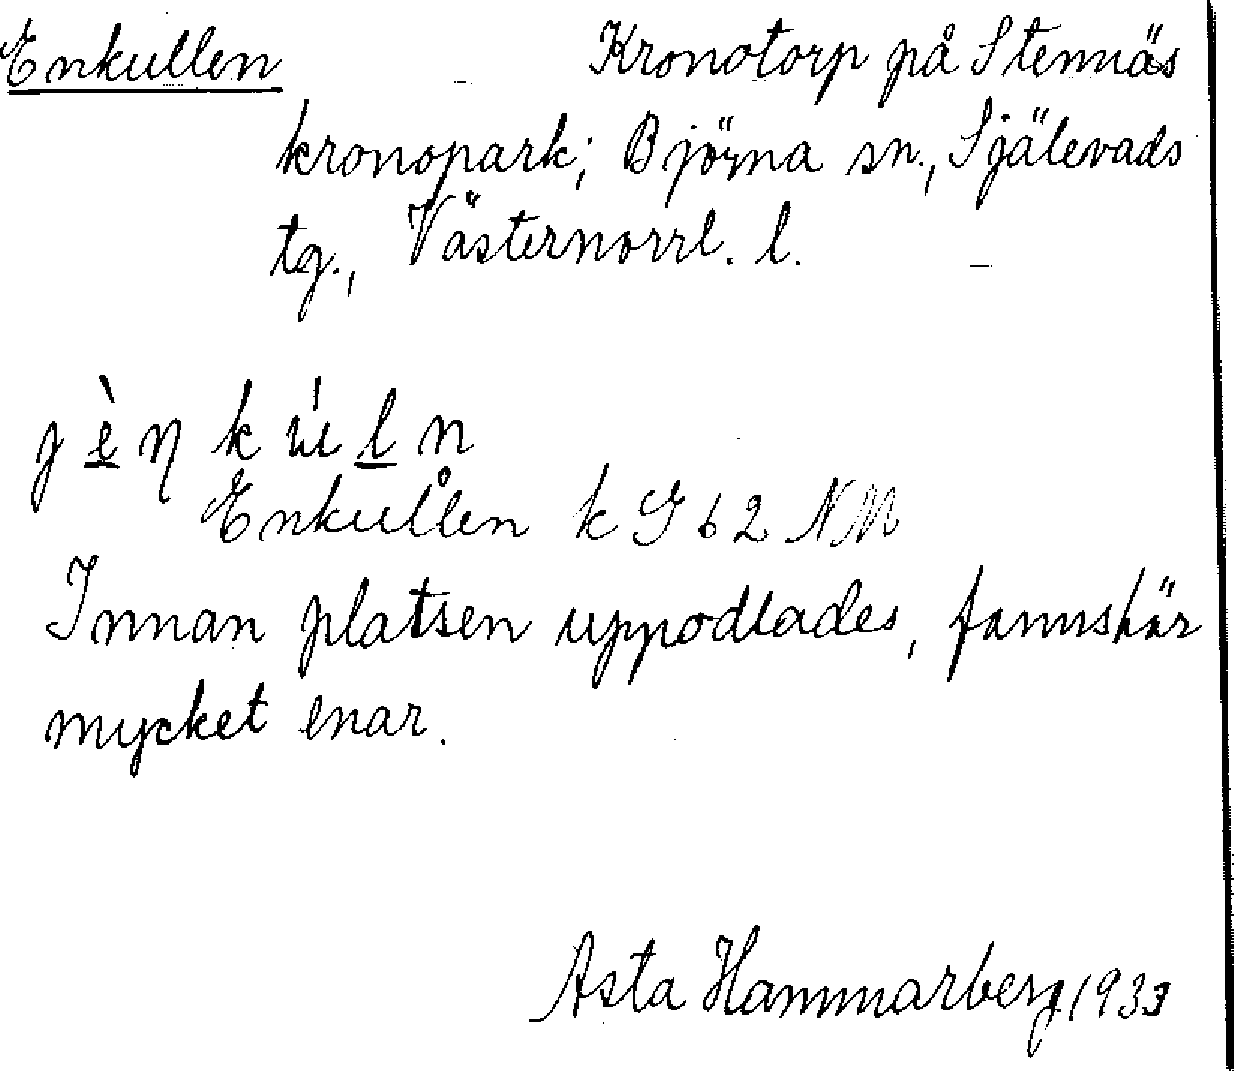 Enkullen - Kronotorp på Stennäs
kronopark; Björna sn., Själevads
tg., Västernorrl. l. -
Enkullen k G 62 NM
Innan platsen uppodlades, fanns här
mycket enar.
Asta Hammarberg 1933